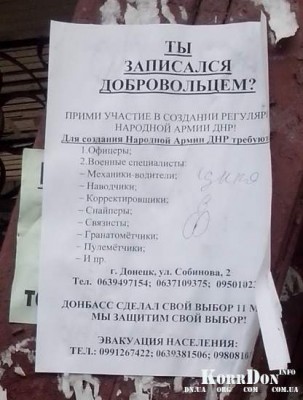 ТЫ
ЗАПИСАЛСЯ
ДОБРОВОЛЬЦЕМ?
ПРИМИ УЧАСТИЕ В СОЗДАНИИ РЕГУЛЯР
НАРОДНОЙ АРМИИ ДНР!
Для создания Народной Армии ДНР требуют
1.Офицеры;
2.Военные специалисты:
– Механики-водители;
– Наводчики;
– Корректировщики;
– Снайперы;
– Связисты;
– Гранатомётчики;
– Пулемётчики;
– И пр.
г. Донецк, ул. Собинова, 2
Тел. 0639497154; 0637109375; 09501023
ДОНБАСС СДЕЛАЛ СВОЙ ВЫБОР 11 М
МЫ ЗАЩИТИМ СВОЙ ВЫБОР!
ЭВАКУАЦИЯ НАСЕЛЕНИЯ:
ТЕЛ.: 0991267422; 0639381506; 0980810
KORRDON INFO